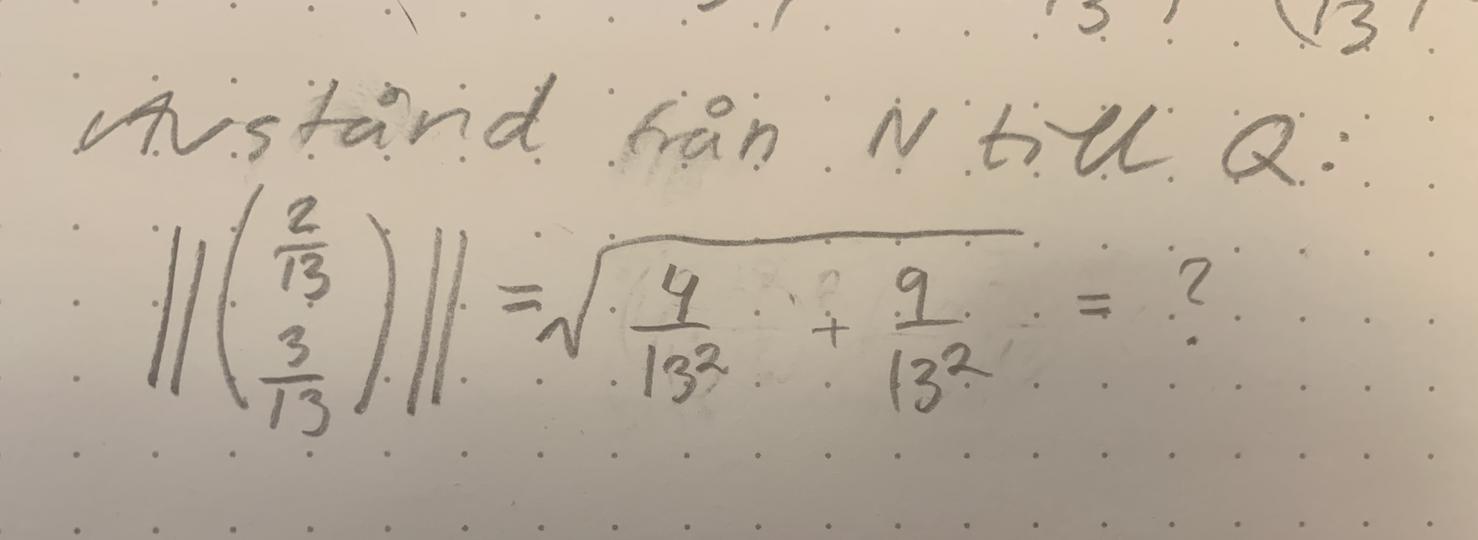 13 (13
Avstånd från N till Q:
||(2/13 3/13)|| = √(4/13² + 9/13²) = ?